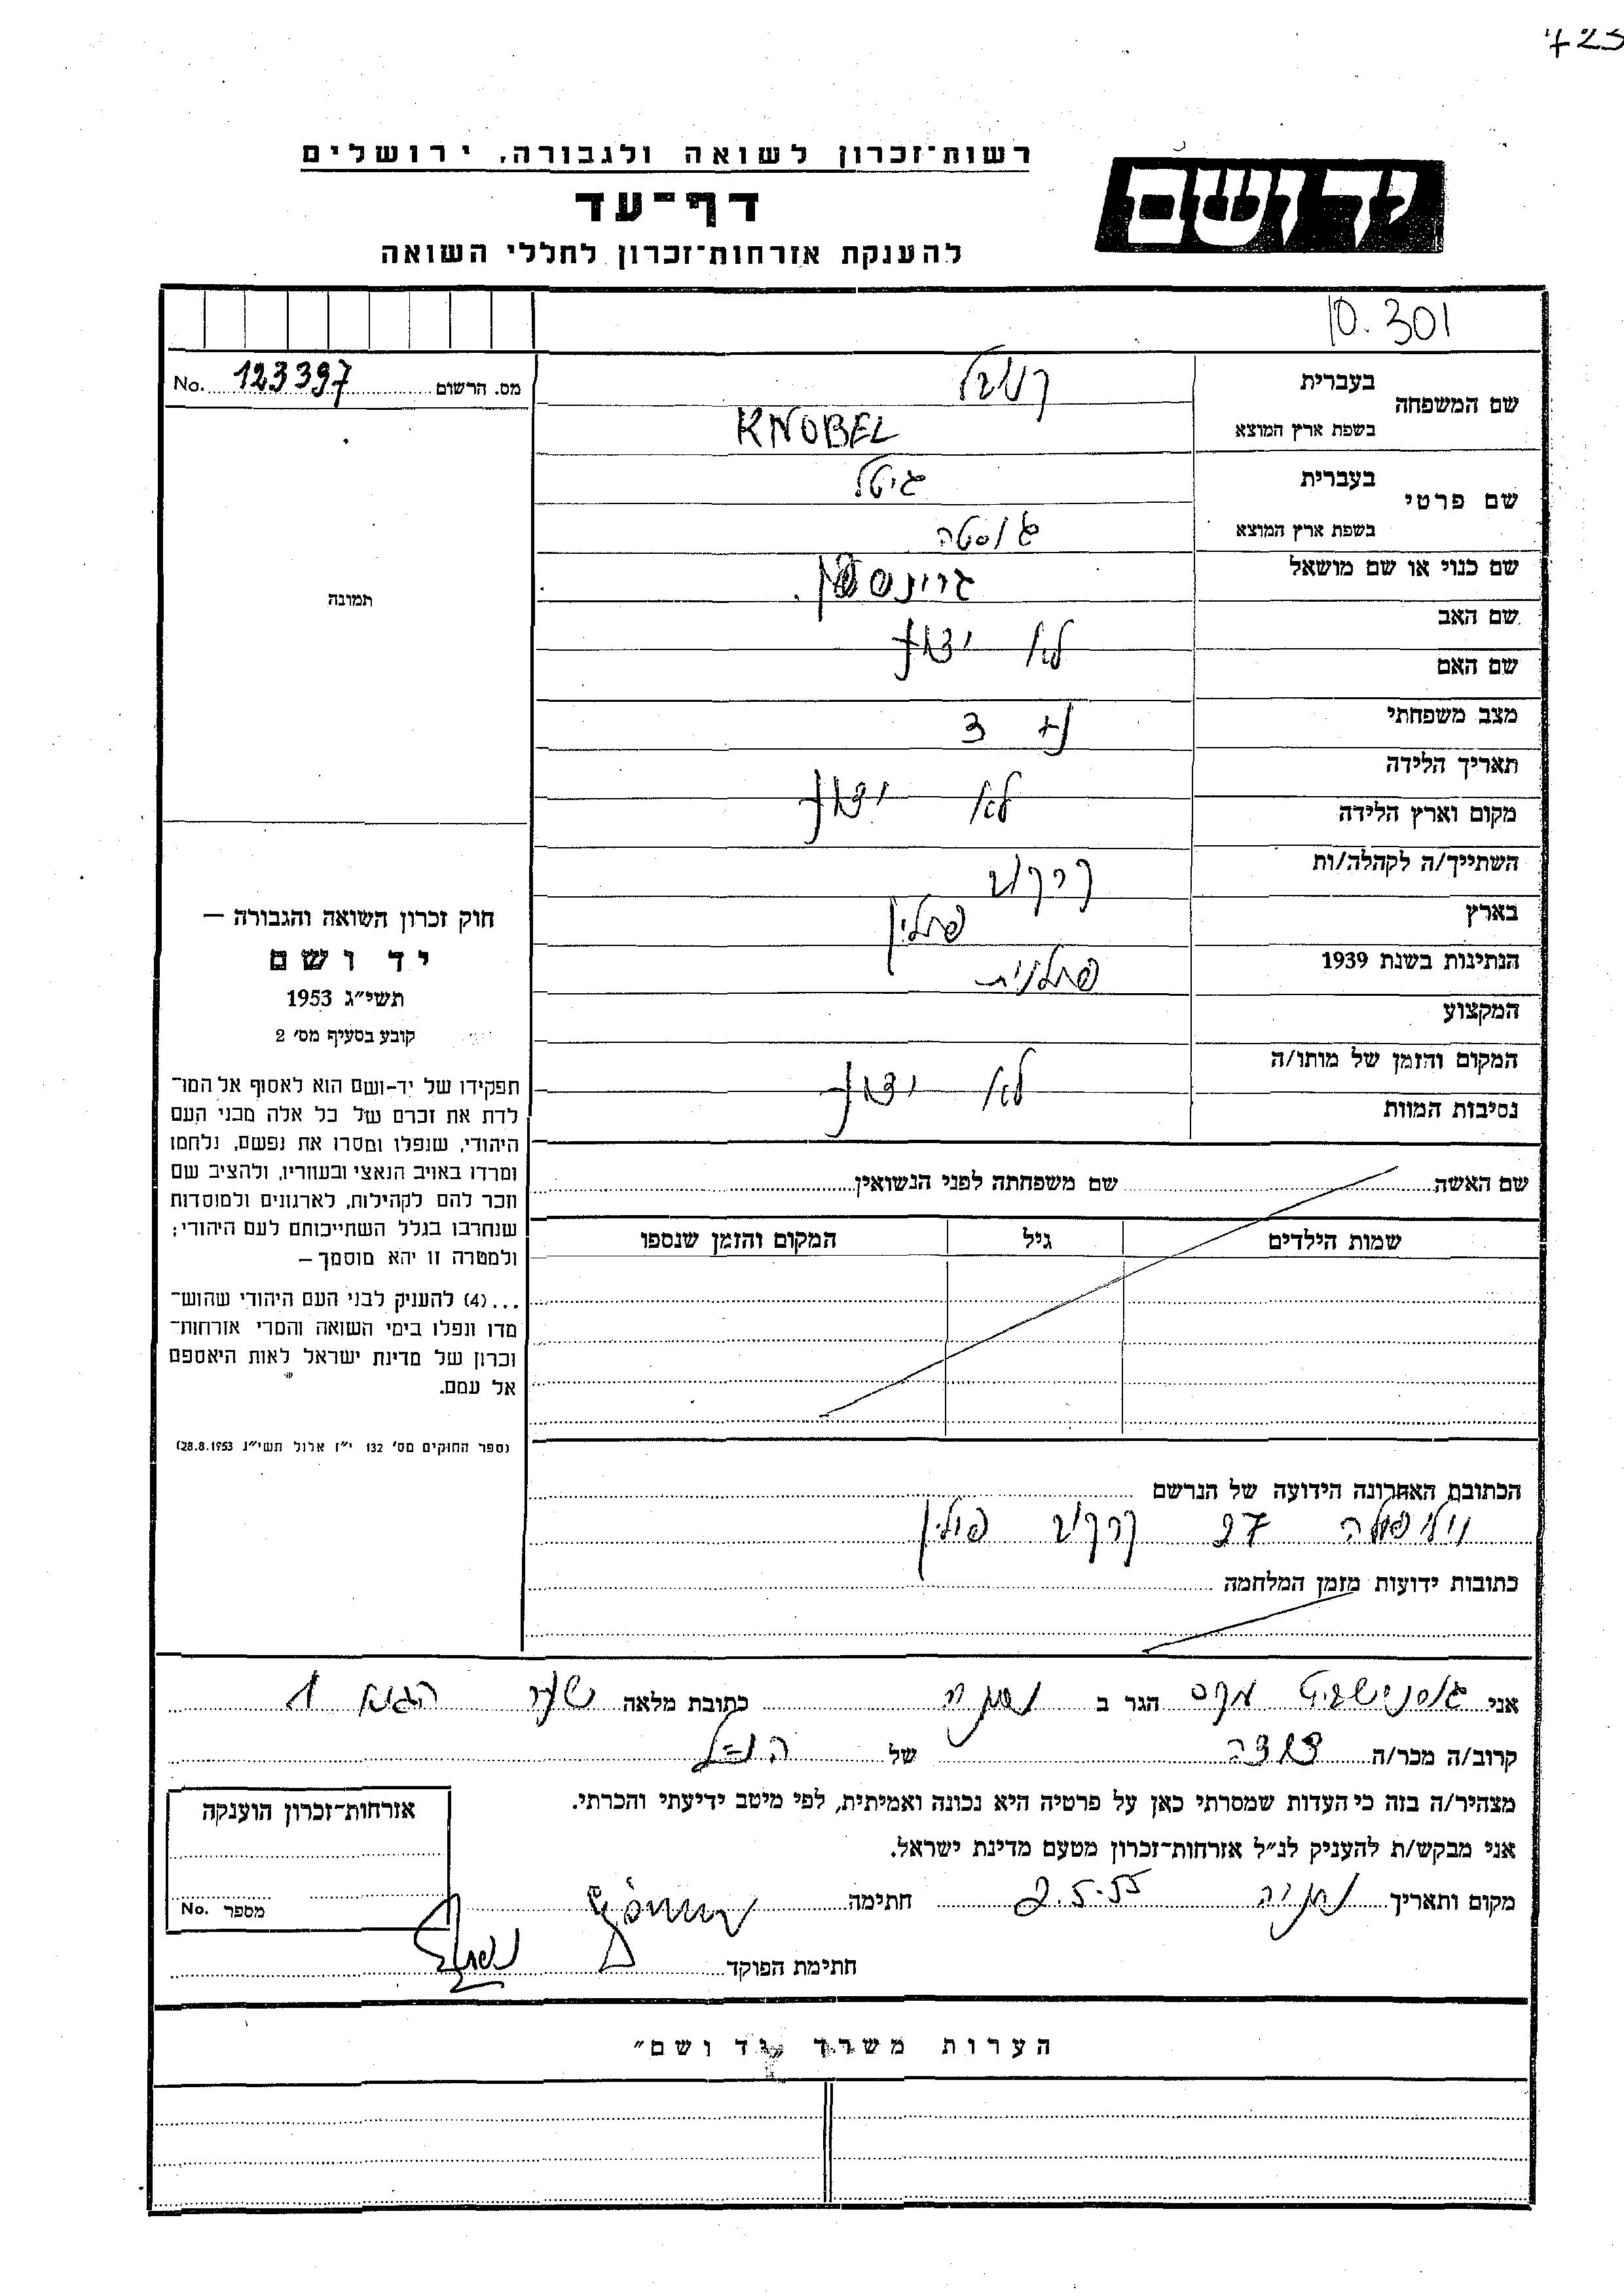 רשות־זכרון לשואה ולגבורה, ירושלים
דף־עד
להענקת אזרחות־זכרון לחללי השואה
יד ושם
10.301
No. 123397 מס. הרשום
תמונה
שם המשפחה
בעברית
בשפת ארץ המוצא KNOBEL
שם פרטי
בעברית גיטל
בשפת ארץ המוצא גוסטה
שם כנוי או שם מושאל
שם האב
שם האם
לא ידוע
מצב משפחתי 3 +
תאריך הלידה
מקום וארץ הלידה
לא ידוע
השתייך/ה לקהלה/ות קרקוב
בארץ פולין
הנתינות בשנת 1939 פולנית
המקצוע
המקום והזמן של מותו/ה
נסיבות המוות
לא ידוע
חוק זכרון השואה והגבורה –
יד ושם
תשי״ג 1953
קובע בסעיף מס׳ 2
תפקידו של יד-ושם הוא לאסוף אל המו־
לדת את זכרם של כל אלה מבני העם
היהודי, שנפלו ומסרו את נפשם, נלחמו
ומרדו באויב הנאצי ובעוזריו, ולהציב שם
וזכר להם לקהילות, לארגונים ולמוסדות
שנחרבו בגלל השתייכותם לעם היהודי;
ולמטרה זו יהא מוסמך –
...(4) להעניק לבני העם היהודי שהוש־
מדו ונפלו בימי השואה והמרי אזרחות־
זכרון של מדינת ישראל לאות היאספם
אל עמם.
(ספר החוקים מס׳ 132 י״ז אלול תשי״ג 28.8.1953)
שם האשה שם משפחתה לפני הנשואין
שמות הילדים גיל המקום והזמן שנספו
הכתובת האחרונה הידועה של הנרשם
27 קרקוב פולין
כתובות ידועות מזמן המלחמה
אני הגר ב נתניה כתובת מלאה שער הגיא 1
קרוב/ה מכר/ה של הנ״ל
מצהיר/ה בזה כי העדות שמסרתי כאן על פרטיה היא נכונה ואמיתית, לפי מיטב ידיעתי והכרתי.
אני מבקש/ת להעניק לנ״ל אזרחות־זכרון מטעם מדינת ישראל.
מקום ותאריך נתניה 2.5.55 חתימה
חתימת הפוקד
אזרחות־זכרון הוענקה
מספר No.
הערות משרד „יד ושם״